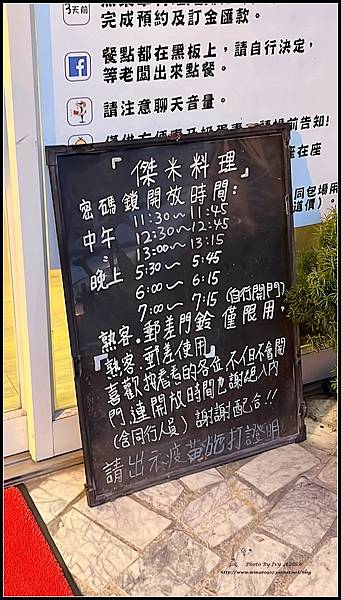 3天前
完成預約及訂金匯款。
餐點都在黑板上，請自行決定，
等老闆出來點餐。
請注意聊天音量。
「傑米料理」
密碼鎖開放時間：
中午 11:30～11:45
12:30～12:45
13:00～13:15
晚上 5:30～5:45
6:00～6:15
7:00～7:15 (自行開門)
熟客.郵差門鈴僅限用，
「熟客.郵差使用」
喜歡找看看的各位，不但不會開
門，連開放時間也謝絕入內
(含同行人員) 謝謝配合!!
請出示疫苗施打證明
Photo By Ivy